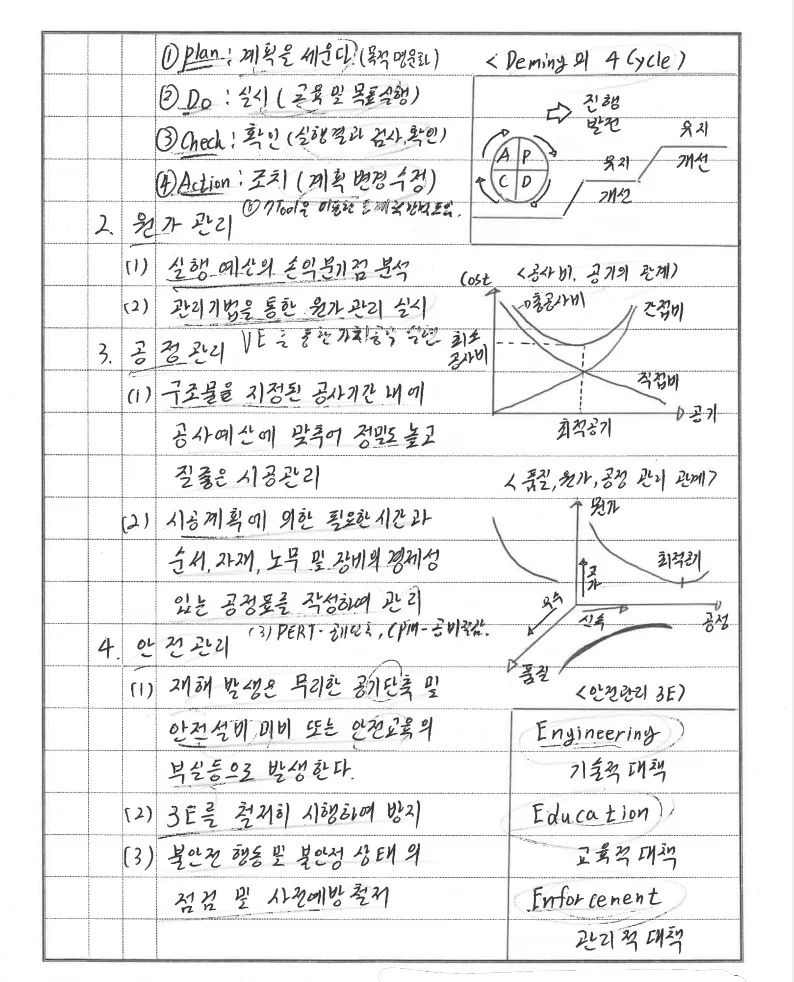 ① Plan : 계획을 세운다 (목적 명문화)
② Do : 실시 (교육 및 목표실행)
③ Check : 확인 (실행결과 검사, 확인)
④ Action : 조치 (계획 변경 수정)
⑤ 7Tool을 이용한
<Deming의 4 Cycle>
진행
발전
A P
C D
유지
개선
유지
개선
2. 원가 관리
(1) 실행 예산의 손익분기점 분석
(2) 관리기법을 통한 원가 관리 실시
VE를 통한 가치
<공사비, 공기의 관계>
Cost
총공사비
간접비
최소
공사비
직접비
공기
최적공기
3. 공정관리
(1) 구조물을 지정된 공사기간 내에
공사예산에 맞추어 정밀도 높고
질좋은 시공관리
(2) 시공계획에 의한 필요한 시간과
순서, 자재, 노무 및 장비의 경제성
있는 공정표를 작성하여 관리
(3) PERT - 공기단축, CPM - 공비절감.
<품질, 원가, 공정 관리 관계>
원가
최적공기
고가
우수
신속
공정
품질
4. 안전관리
(1) 재해 발생은 무리한 공기단축 및
안전설비 미비 또는 안전교육의
부실등으로 발생한다.
(2) 3E를 철저히 시행하여 방지
(3) 불안전 행동 및 불안정 상태의
점검 및 사전예방 철저
<안전관리 3E>
Engineering
기술적 대책
Education
교육적 대책
Enforcenent
관리적 대책